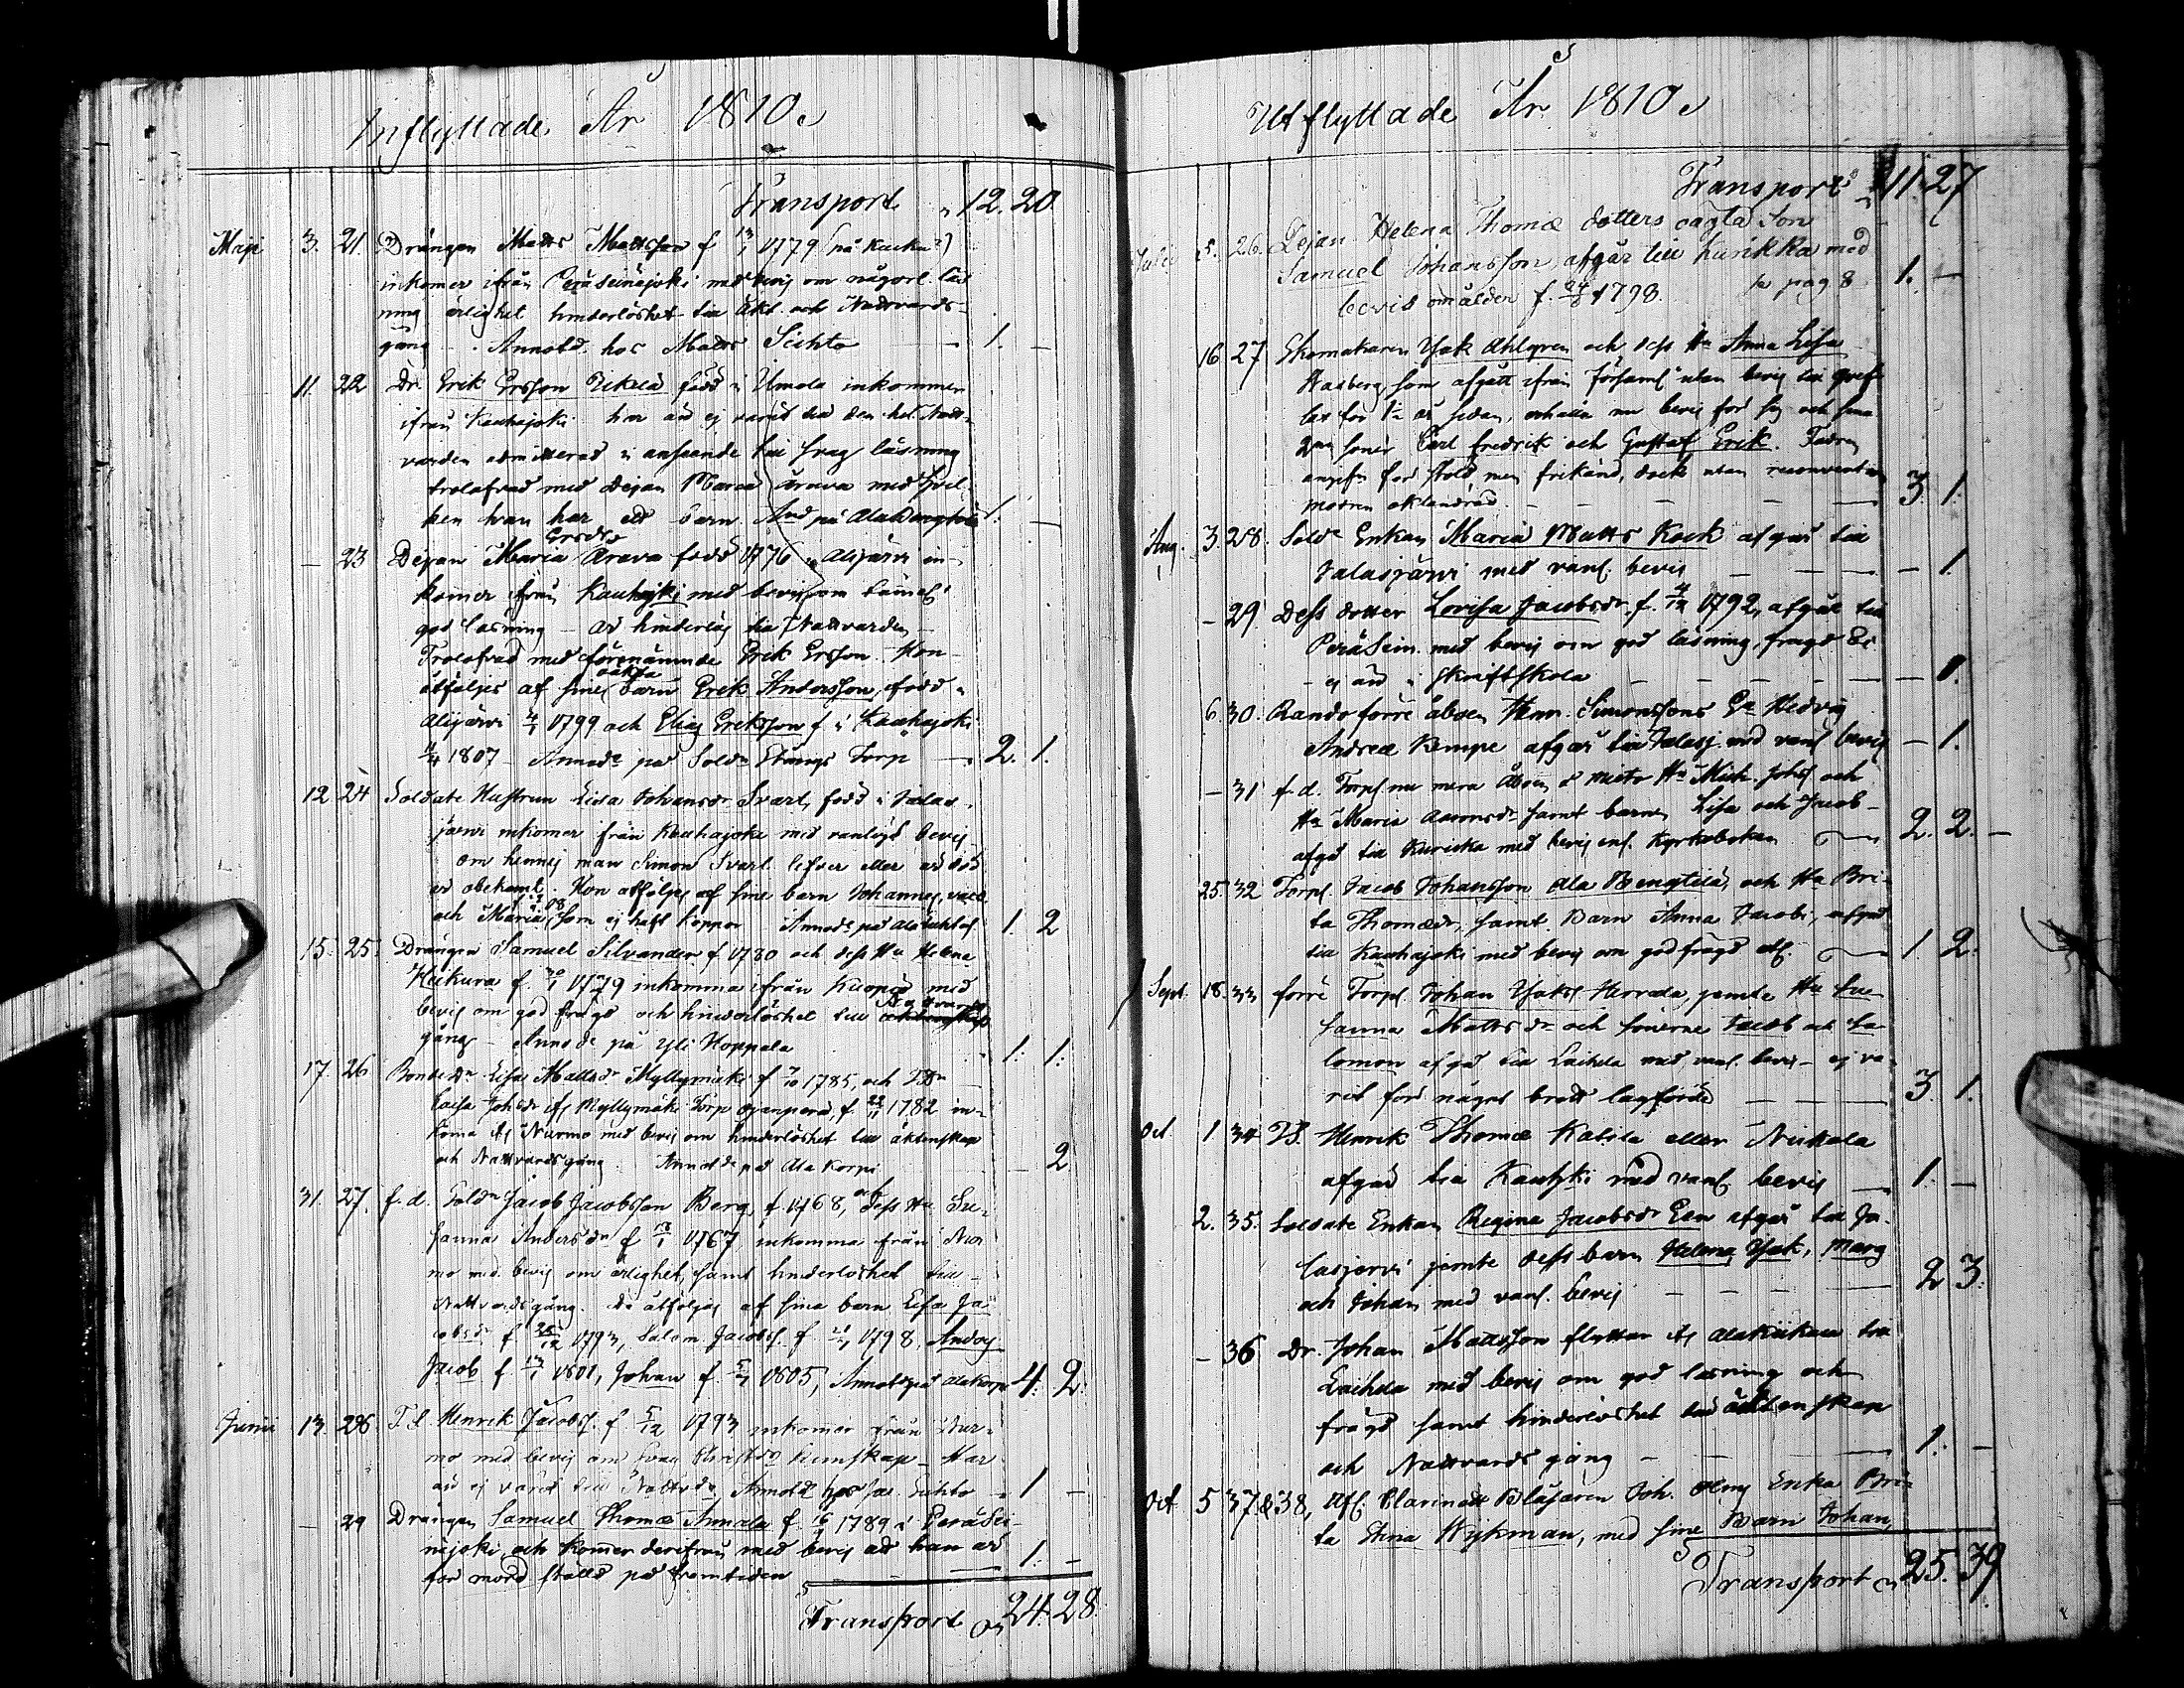 Inflyttade År 1810
Transport 12. 20
Maji 3. 21. Drängen Matts Mattsson f 13/1 1779 (på
inkomer ifrån Peräseinäjoki med bevis om någorl. läs
ning ärlighet hinderlöshet till äkt. och Nattvards-
gång Annotd. hos Matts 1. —
11. 22 Dr. Erik Ersson född i Umola inkommer
ifrån Kauhajoki har än ej varit vid den hel. Natt-
varden admitterad i anseende till svag läsning
trolofvad med Pigan Maria Arava med hvil-
ken han har ett barn 1. —
Ersdr
— 23 Pigan Maria Arava född 1776 i Alajärvi in-
komer ifrån Kauhajoki med bevis om
god läsning är hinderlös till Nattvarden
Trolofvad med förenämnde Erik Ersson. Hon
oäkta
åtföljes af sine barn Erik Andersson, född i
Alajärvi 1799 och Elias Eriksson f i Kauhajoki
1807 — Annotde på Soldn Torp — 2. 1.
12 24 Soldate Hustrun Lisa Johansdr Svart, född i Jalas-
järvi inkomer från Kauhajoki med vanligt bevis
om hennes man Simon Svart lefver eller är död
är obekant. Hon åtföljes af sine barn Johannes,
och Maria, som ej haft koppor 1. 2
15. 25. Drängen Samuel Silvander f 1780 och dess Hu Helena
Heikura f. 1779 inkomma ifrån Kuopio med
Nattvards
bevis om god frägd och hinderlöshet till
gång — Annotde på Yli Hoppala 1. 1.
17. 26 Bonde dr Lisa Mattsdr Myllymäki f 1785, och
Caisa Johsdr fr Myllymäki Torp f. 22/11 1782 in-
koma fr Nurmo med bevis om hinderlöshet till äktenskap
och Nattvardsgång. Annotde på Ala Korpi — 2
31. 27. f. d. Soldn Jacob Jacobsson Berg, f. 1768, och dess Hu Su-
sanna Andersdr f 1767 inkomma från Nur
mo med bevis om ärlighet, samt hinderlöshet till
Nattvardsgång. De åtföljas af sina barn Lisa Ja
cobsdr f 1793, Salom. Jacobs. f. 1798, Anders
Jacob f. 1801, Johan f. 1805, Annoterad Alakorpi 4. 2.
Junii 13. 28. Henrik Jacobs. f. 5/12 1793 inkomer från Nur-
mo med bevis om svag Christdo. kunskap — Har
än ej varit till Nattvdn Annotd hos 1 —
— 29 Drängen Samuel Thomæ Annala f. 1789 i PeräSei-
näjoki, och komer derifrån med bevis att han är
för mord ställd på framtiden 1. —
Transport 24. 28.
Utflyttade År 1810
Transport 11. 27
Julii 5. 26. Pejan Helena Thomæ dotters oägta Son
Samuel Johansson, afgår till Kurikka med
bevis om ålder f. 24/8 1798. se pag 8 1. —
16 27 Skomakaren Isak Ahlgren och dess Hu Anna Lisa
Hasberg som afgått ifrån Församl. utan bevis till
för 1½ år sedan, erhålla nu bevis för sig och sina
2ne söner Carl Fredrik och Gustaf Erik. Fadren
angifn för stöld men frikänd, dock utan reconvention
modren oklandrad. — 3. 1.
Aug. 3. 28. Solde Enkan Maria Matts Kock afgår till
Jalasjärvi med vanl. bevis — — 1.
— 29 Dess dotter Lovisa Jacobsdr. f. 4/12 1792, afgår till
PeräSein. med bevis om god läsning, frägd &c
ej än i Skriftskola — 1.
6. 30. Rando förre åboen Henr. Simonssons Ea Hedvig
Andreæ Kempe afgår till Jalasj. med vanl. bevis — 1.
— 31 f. d. Torp. nu mera Åboen Hu Mich. Johs. och
Hu Maria samt barnen Lisa och Jacob
afgå till Kurikka med bevis enl. Kyrkoboken 2. 2.
25. 32 Torp. Jacob Johansson Ala Bengtilä, och Hu Bri-
ta Thomædr, samt Barn Anna Jacobi, afgå
till Kauhajoki med bevis om god frägd etc. 1. 2.
Sept. 18. 33 förre Torp. Johan Isaks. Herrala, jemte Hu Su-
sanna Mattsdr och sönerne Jacob och Sa
lomon afgå till Laihela med vanl. bevis — ej va-
rit för något brott lagförde 3. 1.
Oct. 1 34 Henrik Thomæ Katila eller Niskala
afgår till Kauhjki med vanl. bevis — 1. —
2. 35. Soldate Enkan Regina Jacobsdr Een afgår till Ja-
lasjervi jemte dess barn Helena, Isak, Marg
och Johan med vanl. bevis — 2 3.
— 36 Dr. Johan Mattsson flyttar fr till
Laihela med bevis om god läsning och
frägd samt hinderlöshet till äktenskap
och Nattvardsgång — 1. —
Oct 5 37.&38, Afl. Clarinett Blåsaren Joh. Enka Bri-
ta Stina Wykman, med sine Barn Johan,
Transport 25. 39